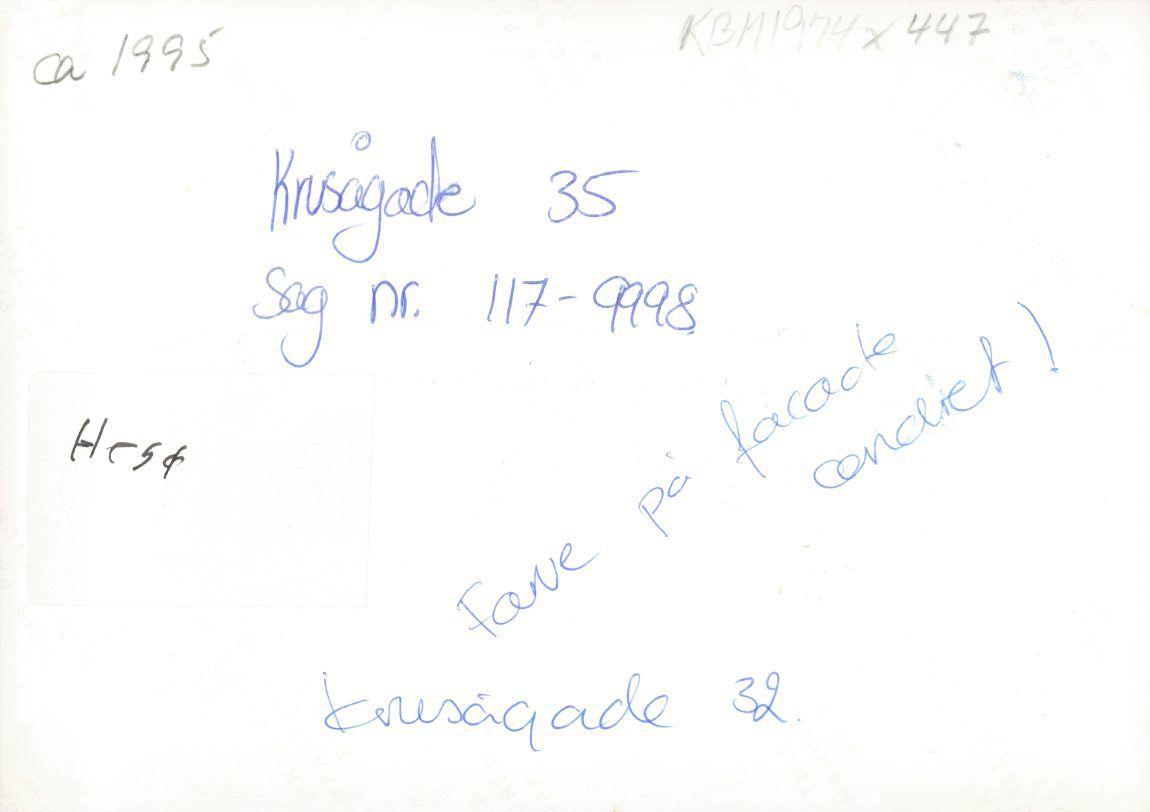 ca 1995
KBH1974x447
Krusågade 35
Sag nr. 117-9998
Farve på facade
ændret!
Krusågade 32.